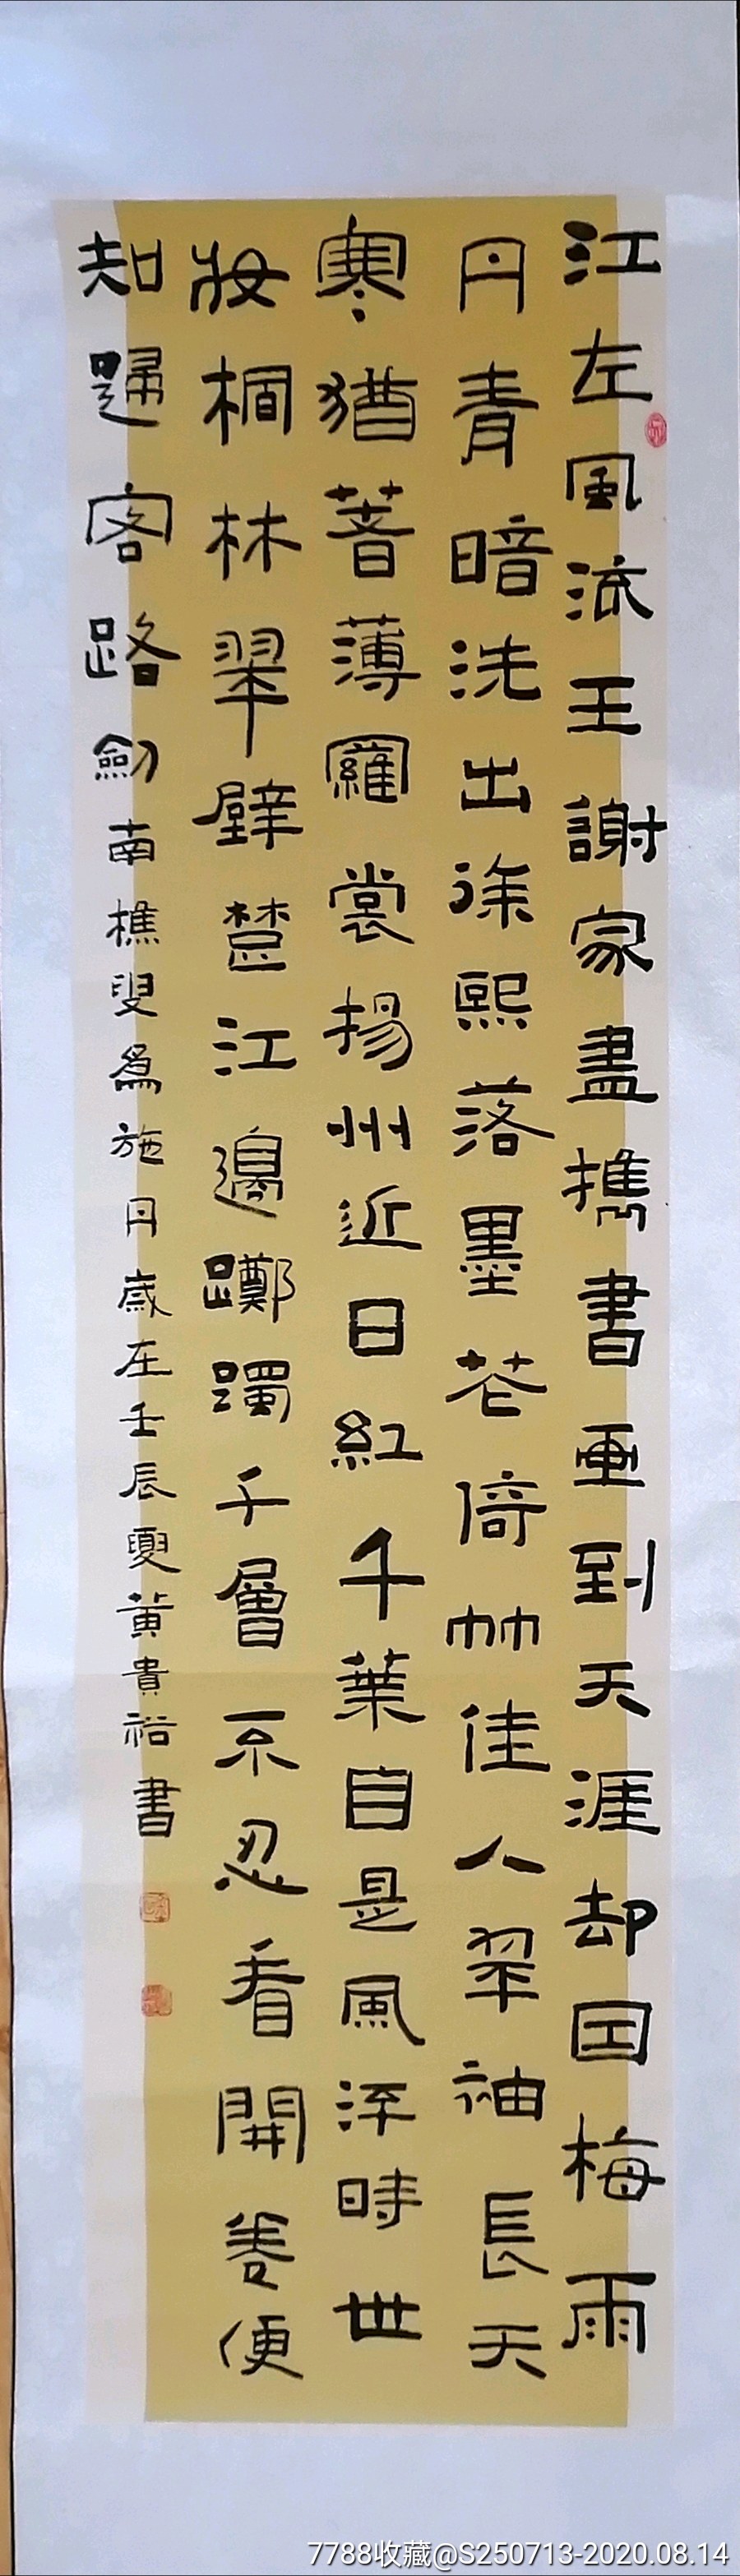 江左風流王謝家盡攜書畫到天涯却因梅雨
丹青暗洗出徐熙落墨花倚竹佳人翠袖長天
寒猶著薄羅裳揚州近日紅千葉自是風流時世
妝桐林翠壁楚江邊躑躅千層不忍看開卷便
知歸客路劍南樵叟為施丹歲在壬辰夏黃貴裕書
7788收藏@S250713-2020.08.14